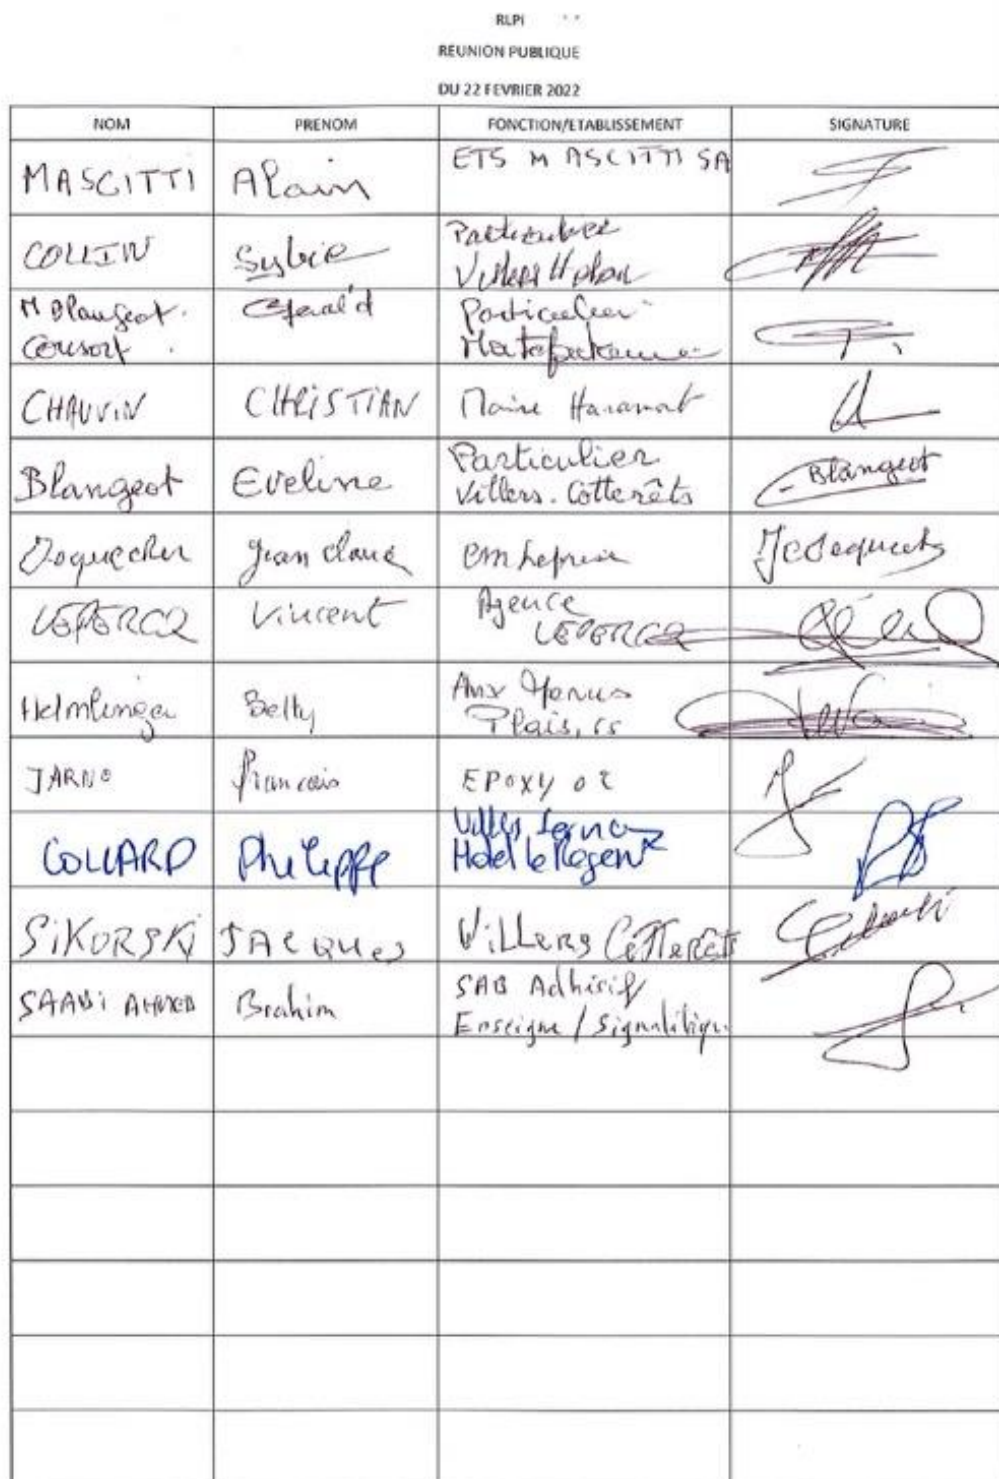 RLPi
REUNION PUBLIQUE
DU 22 FEVRIER 2022
NOM PRENOM FONCTION/ETABLISSEMENT SIGNATURE
MASCITTI Alain ETS MASCITTI SA
COLLIN Sylvie Particulier
M Blangeot. Gérald Particulier
Consort.
CHAUVIN CHRISTIAN Maire Haramont
Blangeot Eveline Particulier Blangeot
Villers-Cotterêts
Jean Claude
LEPERCQ Vincent Agence
LEPERCQ
Helmlinger Betty Aux Menus
Plaisirs
JARNO Francois EPOXY 02
COLLARD Philippe
Hotel le Regent
SiKORSKi JACQUES Villers Cotterêts
SAABi AHMED Brahim SAB Adhésif
Enseigne / Signalétique